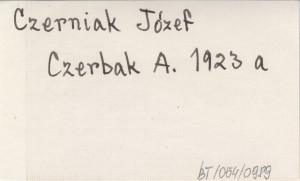 Czerniak Józef
Czerbak A. 1923 a
bT/064/0989